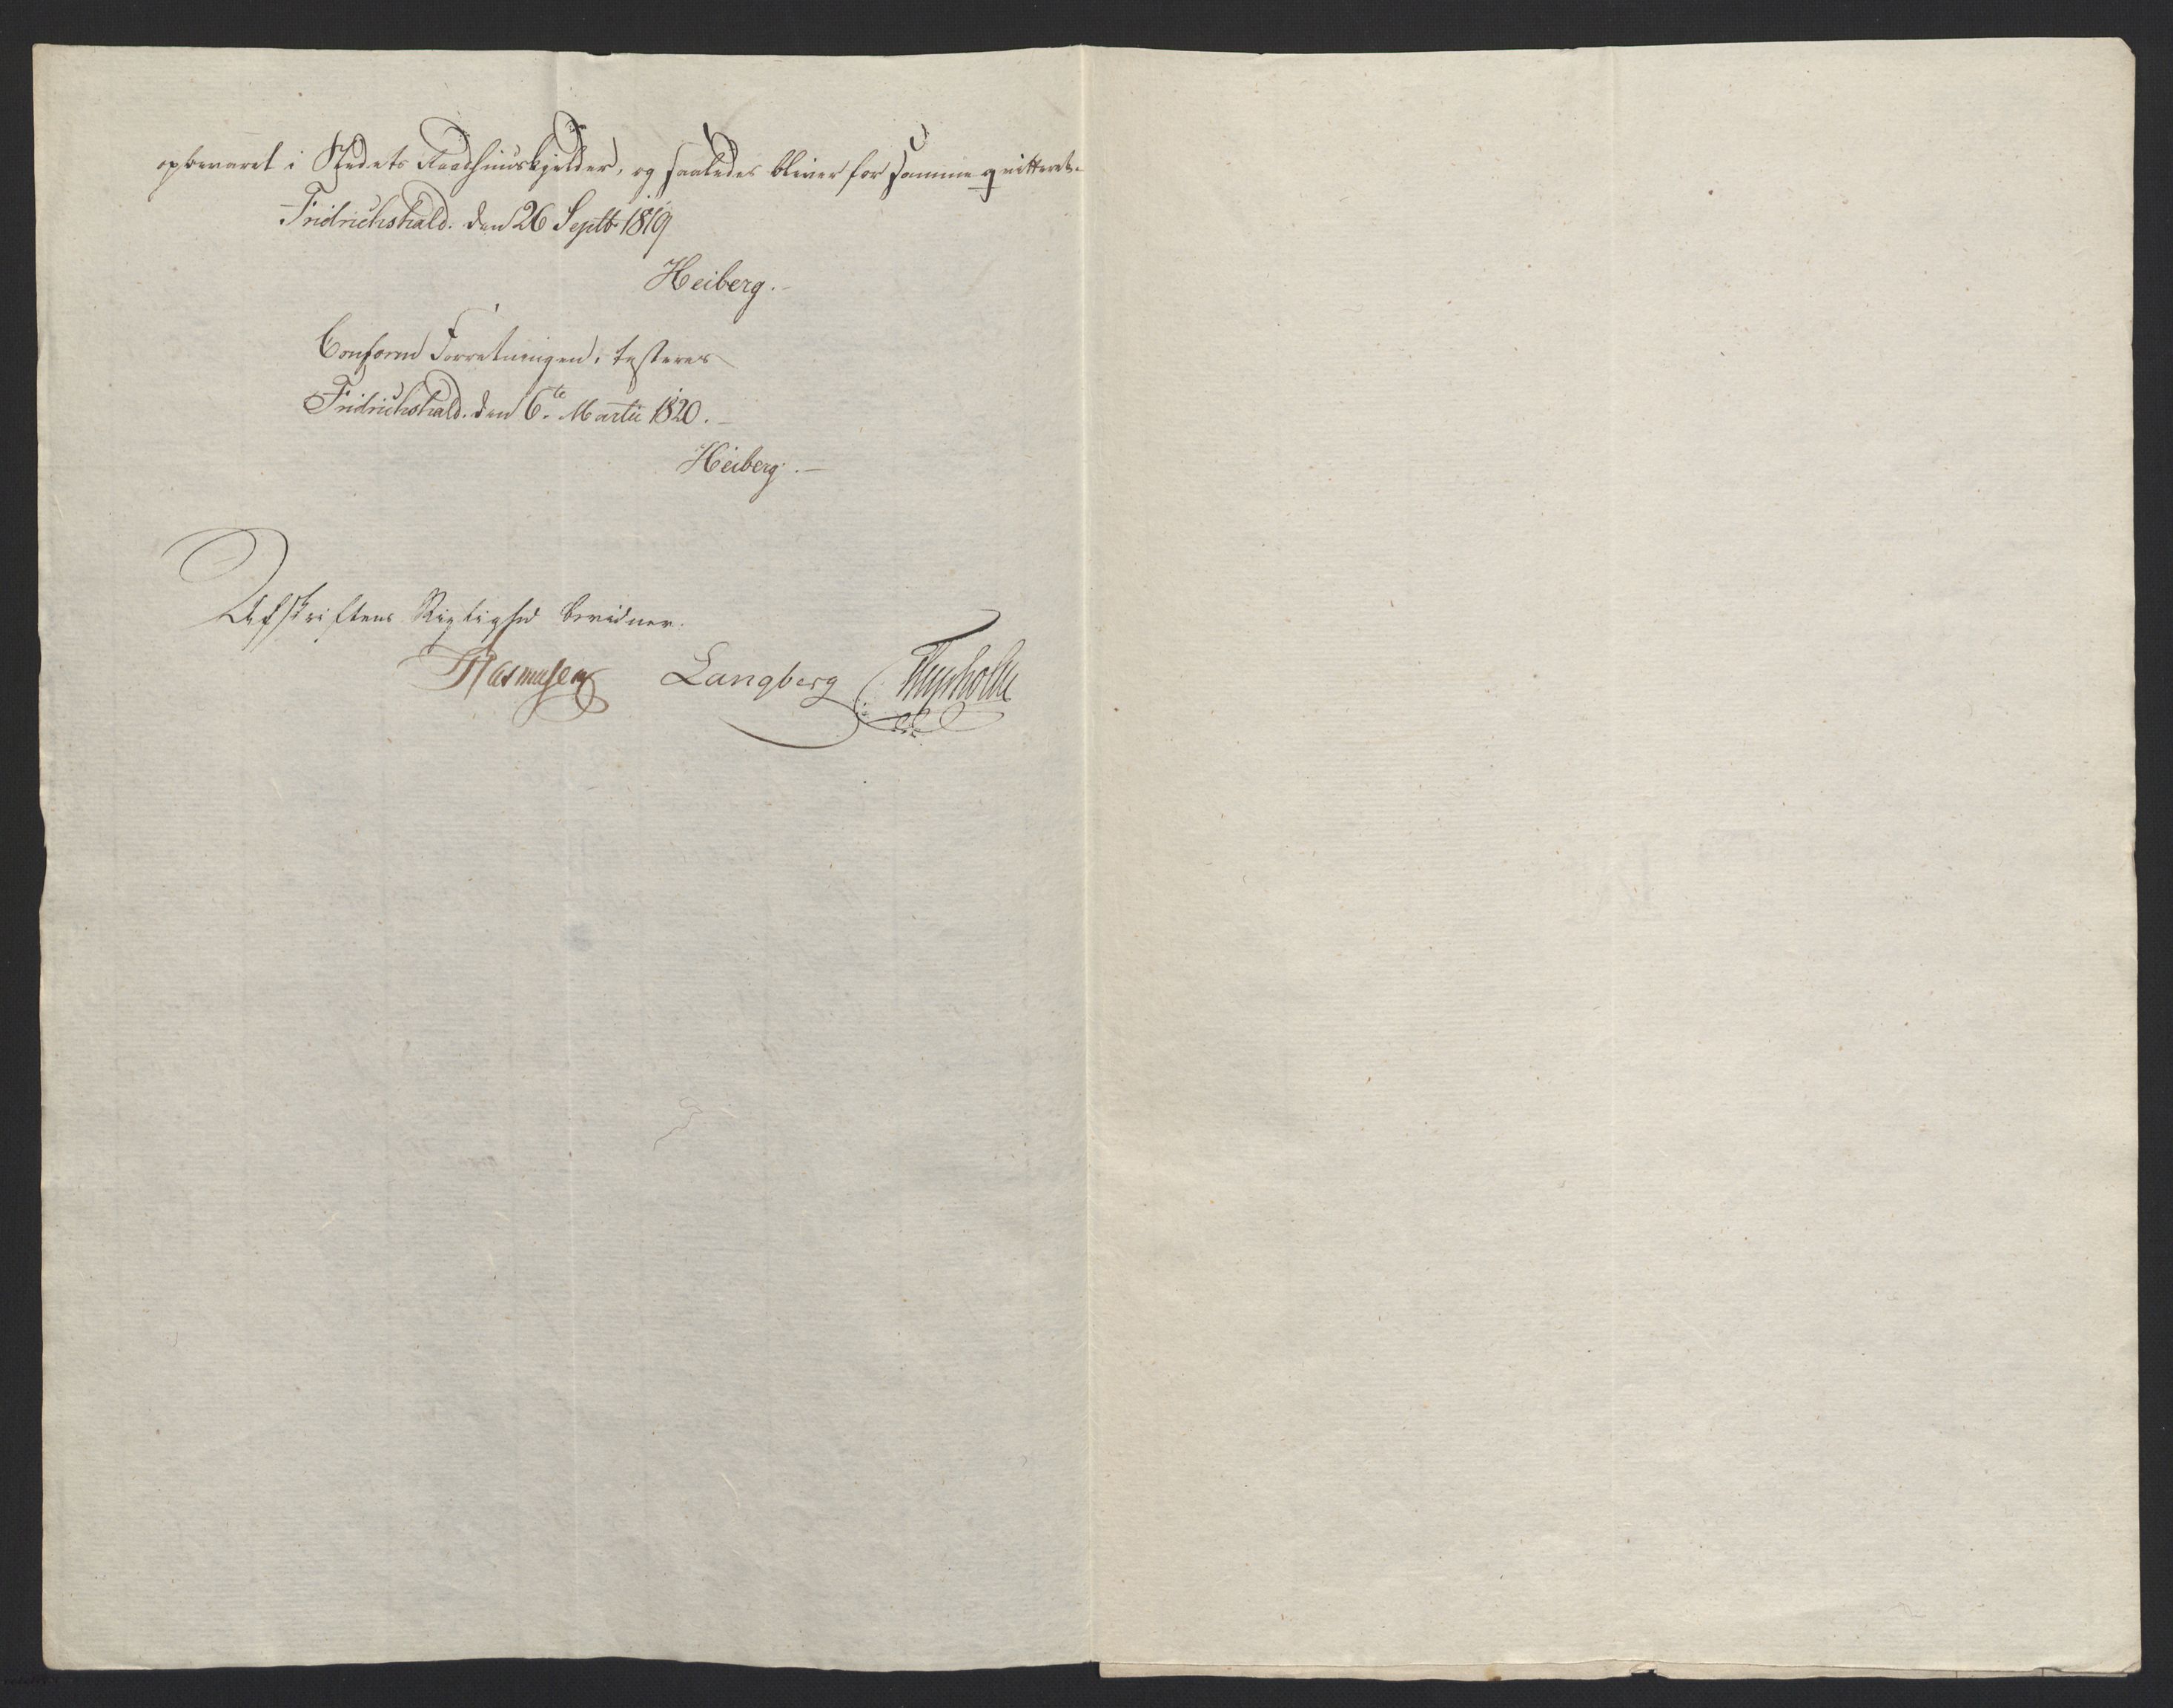 opbevaret i Stedets Raadhuuskjelder, og saaledes bliver for samme qvitteret.
Fridrichshald. den 26 Septb 1819
Heiberg.-
Conform Forretningen, testerer
Fridrichshald. den 6te Martii 1820.-
Heiberg.-
Afskriftens Rigtighed bevidner.
Rasmusen Langberg